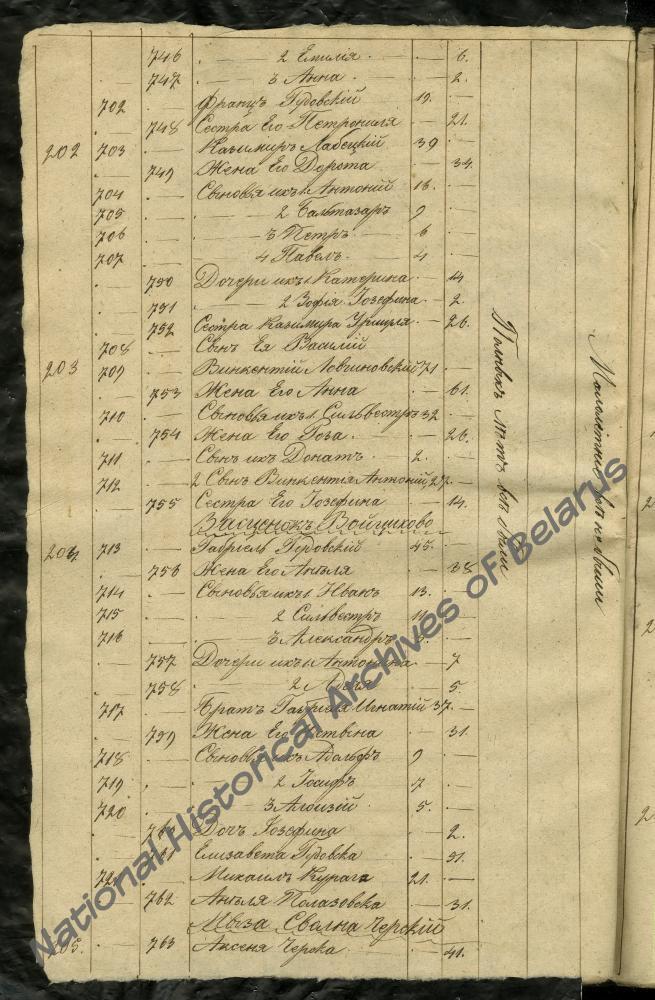 746 2 Емилія 6.
747 3 Анна 2.
702 Францъ Гудовскій 19.
748 Сестра Его Петронеля 21.
202 703 Казимиръ Лабецкій 39
749 Жена Его Дорота 34.
704 Сыновья ихъ 1 Антоній 16.
705 2 Бальтазаръ 9
706 3 Петръ 6
707 4 Павелъ 4
750 Дочери ихъ 1 Катерина 14
751 2 Зофія Іозефина 2.
752 Сестра Казимира 26.
708 Сынъ Ея Василій
203 709 Винкентій 71
753 Жена Его Анна 61.
710 Сыновья ихъ 1 Сильвестръ 32
754 Жена Его Роза 26.
711 Сынъ ихъ Донатъ 2.
712 2 Сынъ Винкентія Антоній 27.
755 Сестра Его Іозефина 14.
Застѣнокъ Войцихово
204 713 Габріель Гудовскій 45.
756 Жена Его Анѣля 38
714 Сыновья ихъ 1 Иванъ 13.
715 2 Сильвестръ
716 3 Александръ
757 Дочери ихъ 1 Антонина 7
758 2 Адель 5.
717 Братъ Габріеля Игнатій 37.
759 Жена Его 31.
718 Сыновья ихъ Адольфъ 9
719 2 Іосифъ 7
720 3 Алоизій 5.
760 Дочь Іозефина 2.
761 Елизавета Гудовска 51.
721 Михаилъ Курага 21.
762 Анѣля Полазовска 31.
Мыза Свольна Черскій
205. 763 Аксеня Черска 41.
Полныхъ лѣтъ всѣ были
Малолѣтнія не были
National Historical Archives of Belarus